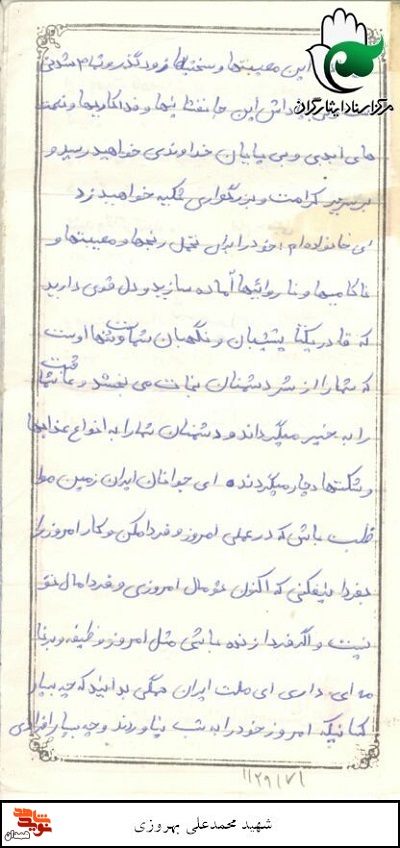 مرکز اسناد ایثارگران
این مصیبتها و سختیها زودگذر و تمام شدنی
پاداش این جانفشانیها و فداکاریها و نعمت
های ابدی و بی پایان خداوندی خواهید رسید و
بر سریر کرامت و بزرگواری تکیه خواهید زد
ای خانواده ام؛ خود را برای تحمل رنجها و مصیبتها و
ناکامیها و ناروائیها آماده سازید و دل قوی دارید
که قادر یکتا پشتیبان و نگهبان شماست و تنها اوست
که شما را از شر دشمنان نجات می بخشد و عاقبت شما
را به خیر میگرداند و دشمنان شما را به انواع عذابها
و شکستها دچار میگرداند ای جوانان ایران زمین
باش که در عملی امروز و فردا مکن و کار امروز را
بفردا میفکنی که اکنون تو مال امروزی و فردا مال تو
نیست و اگر فردا زنده باشی مثل امروز وظیفه و برنا
مه ای داری ای ملت ایران همگی بدانید که چه بسیار
کسانیکه امروز خود را به شب نیاوردند و چه بسیار افرادی
۱۱۲۹۱۷۱
شهید محمدعلی بهروزی
نوید شاهد
همدان